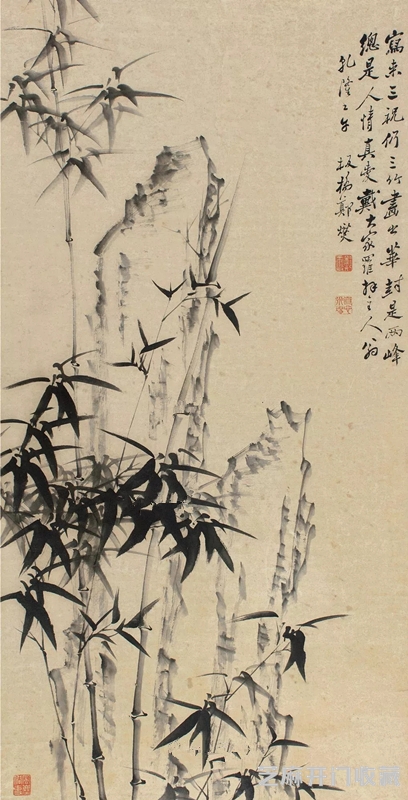 寫来三祝仍三竹畫出華封是兩峰
總是人情真愛戴大家羅拜主人翁
乾隆壬午 板橋鄭燮
芝麻开门收藏